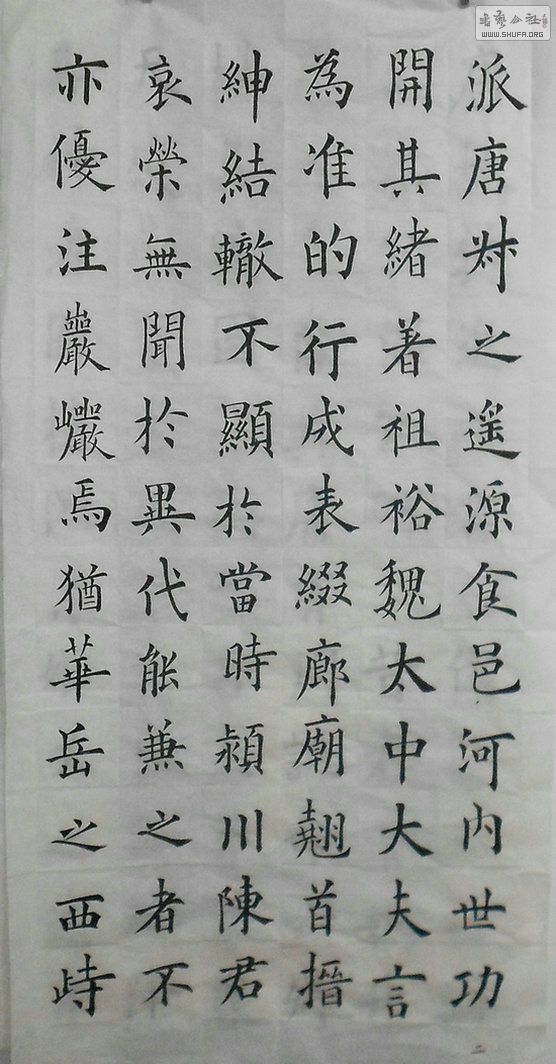 派唐叔之遥源食邑河内世功
開其緒著祖裕魏太中大夫言
為准的行成表綴廊廟翹首搢
紳結轍不顯於當時潁川陳君
哀榮無聞於異代能兼之者不
亦優注巖巖焉猶華岳之西峙
WWW.SHUFA.ORG